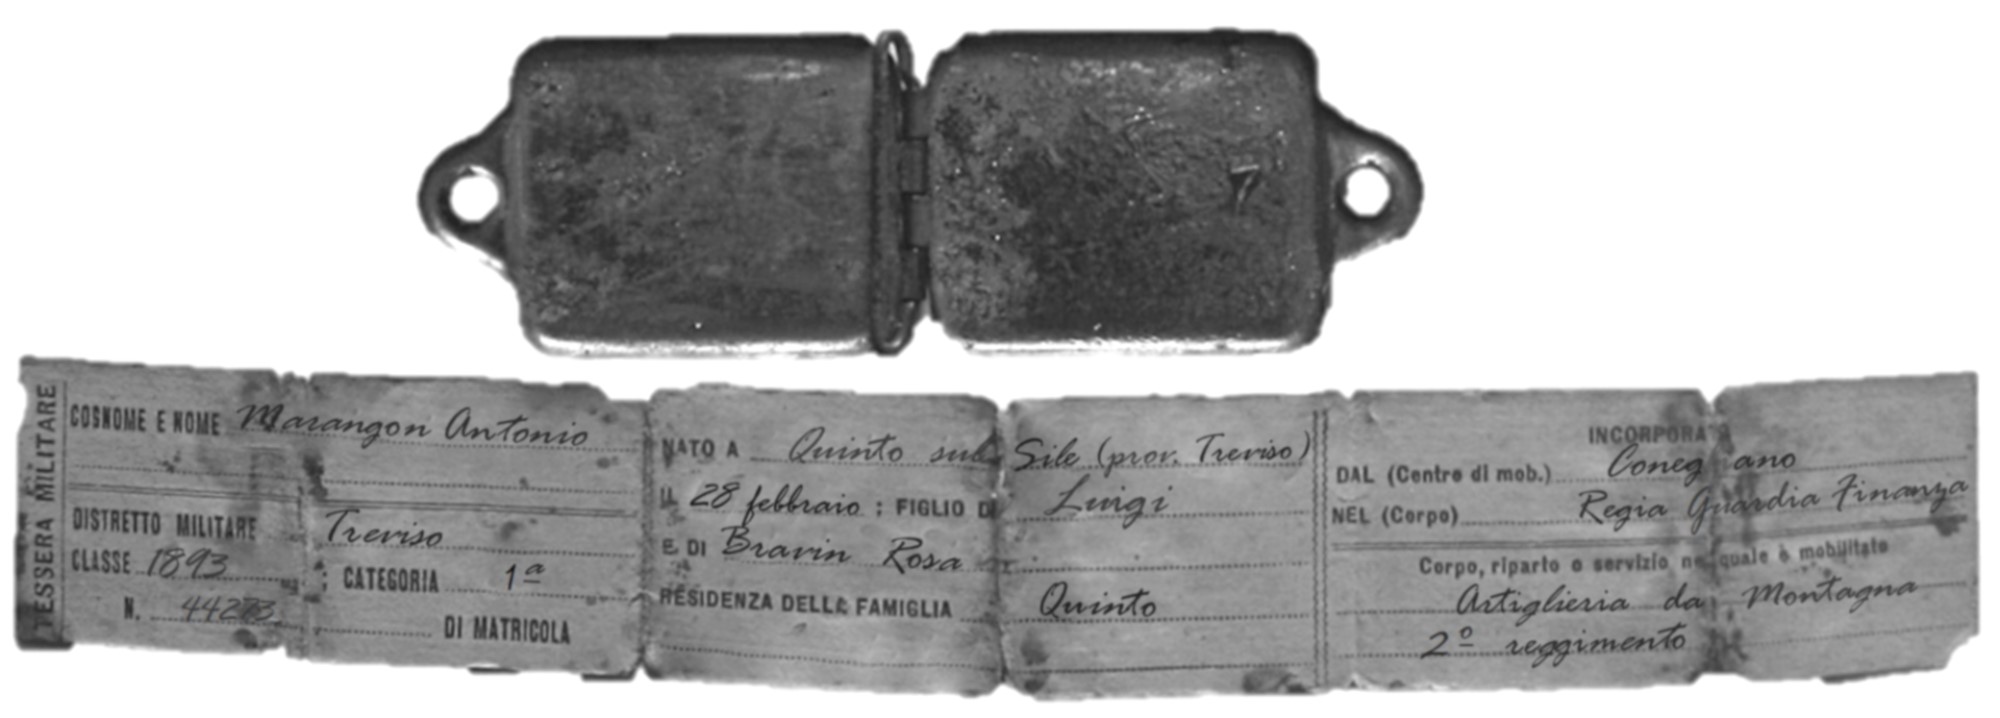 7
TESSERA MILITARE
COGNOME E NOME Marangon Antonio
DISTRETTO MILITARE Treviso
CLASSE 1893 : CATEGORIA 1ª
N. 44273 DI MATRICOLA
NATO A Quinto sul Sile (prov. Treviso)
IL 28 febbraio : FIGLIO DI Luigi
E DI Bravin Rosa
RESIDENZA DELLA FAMIGLIA Quinto
INCORPORATO
DAL (Centro di mob.) Coneg ano
NEL (Corpo) Regia Guardia Finanza
Corpo, riparto o servizio nel quale è mobilitato
Artiglieria da Montagna
2º reggimento